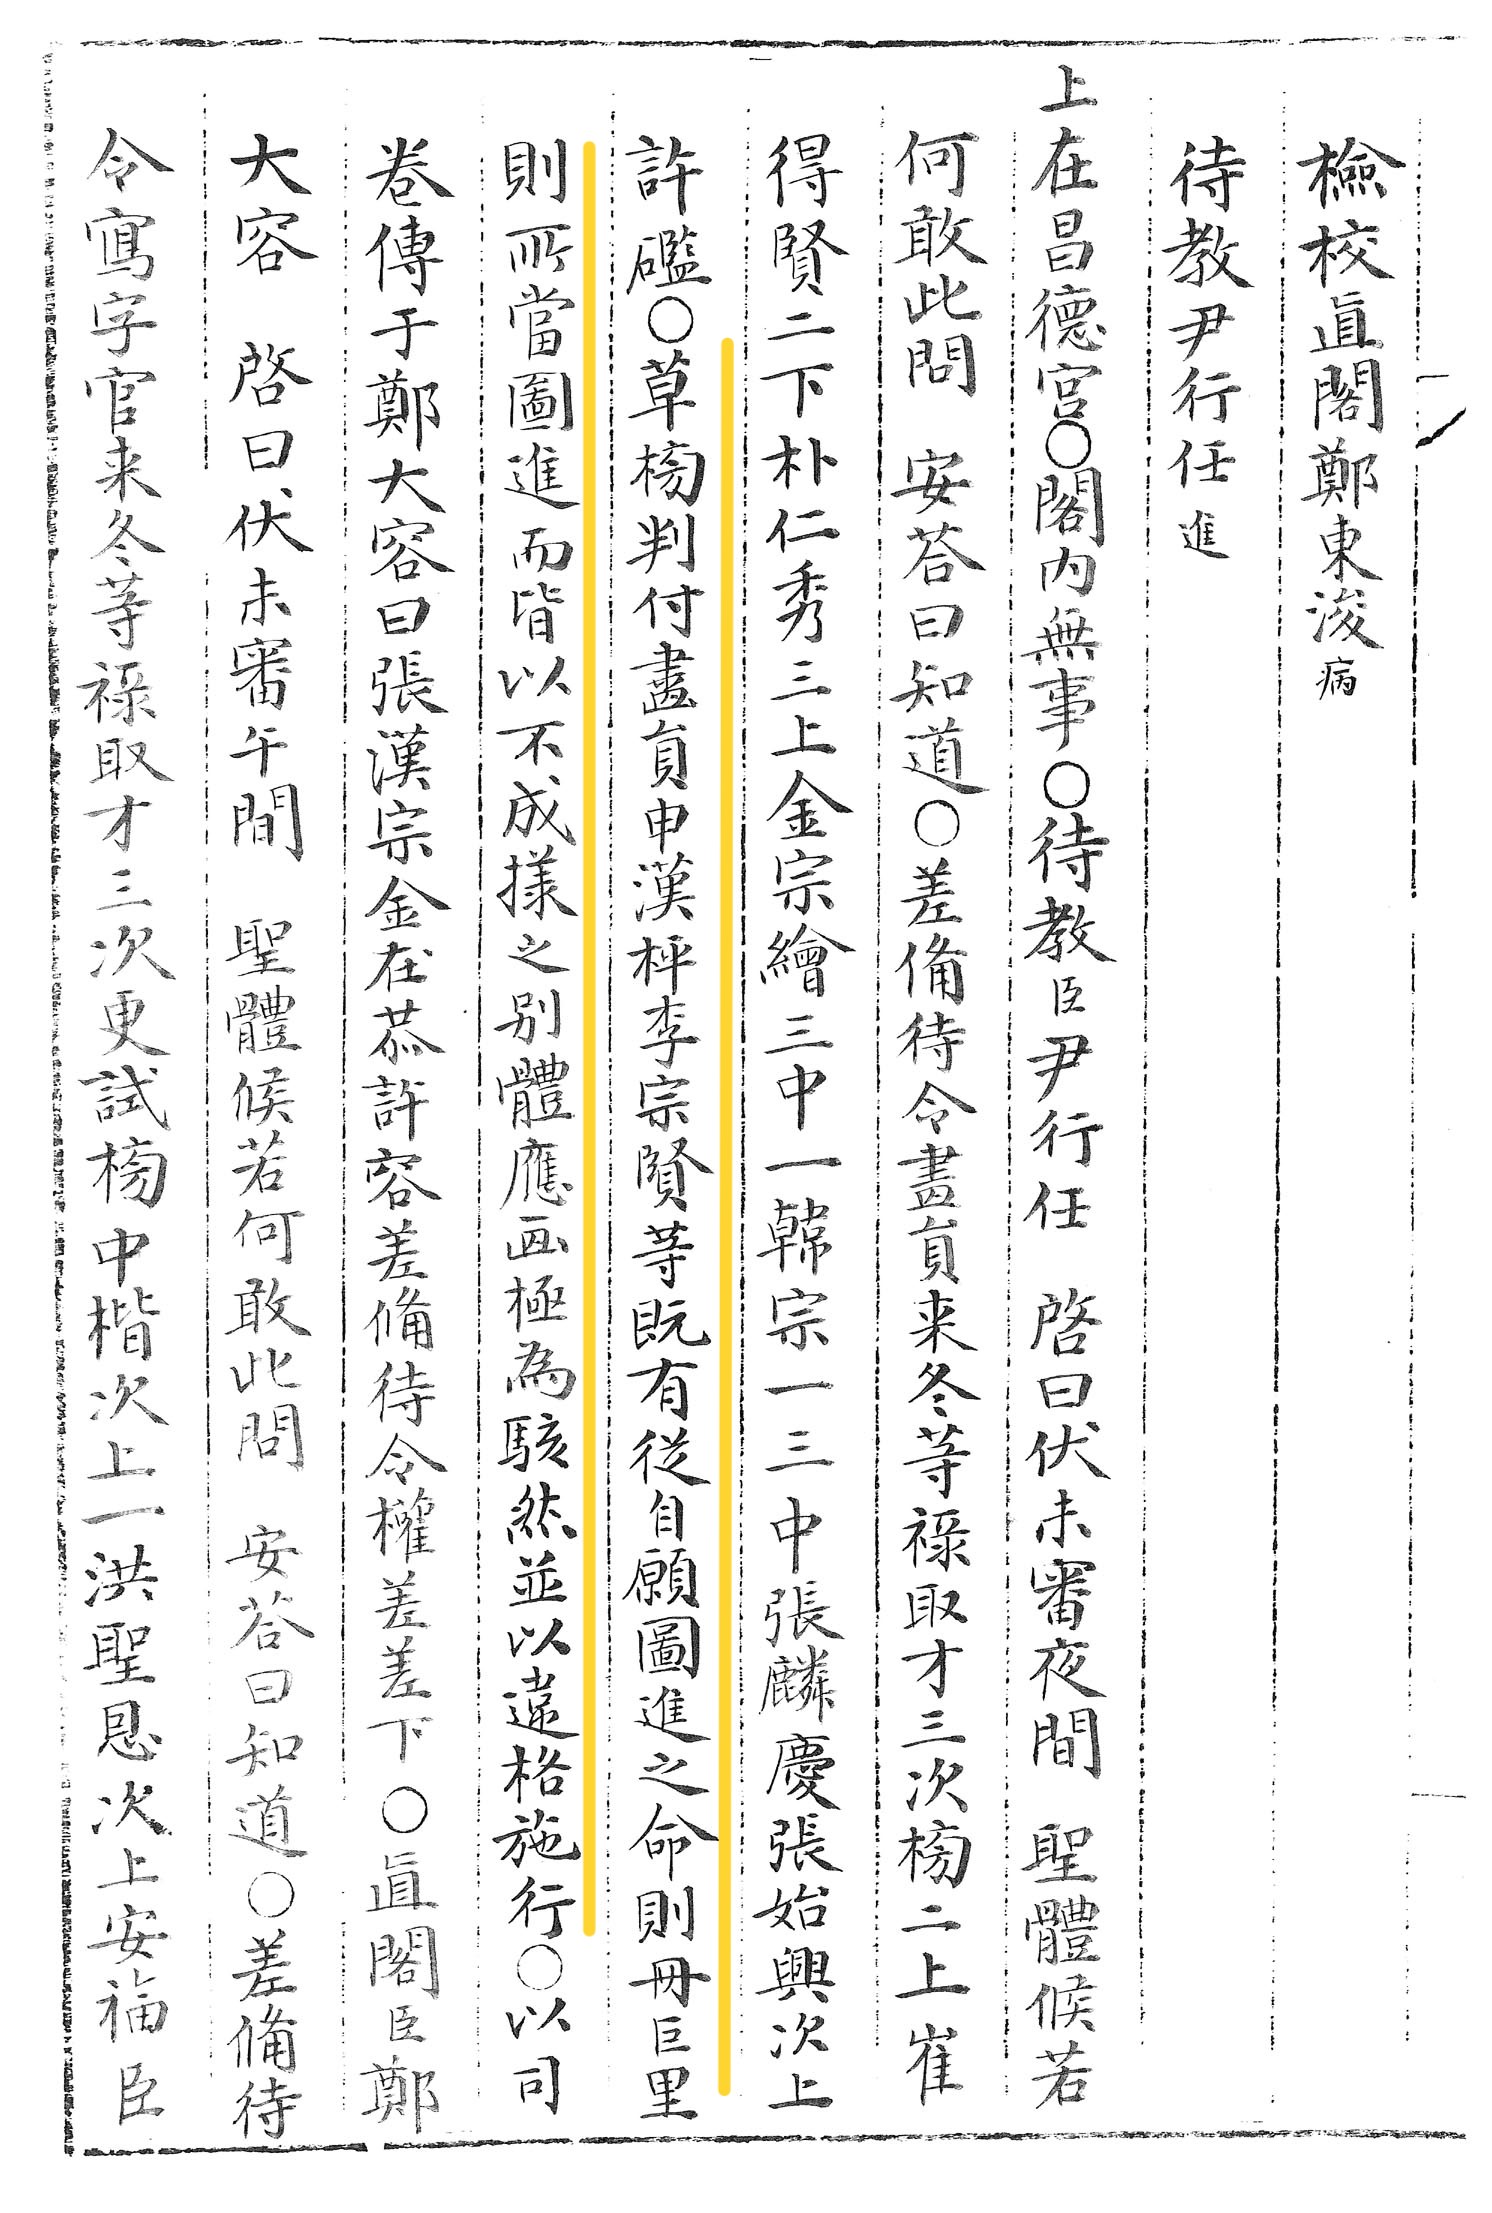 檢校直閣鄭東浚病
待教尹行任進
上在昌德宮○閣內無事○待教臣尹行任 啓曰伏未審夜間 聖體候若
何敢此問 安荅曰知道○差備待令畫員来冬等祿取才三次榜二上崔
得賢二下朴仁秀三上金宗繪三中一韓宗一三中張麟慶張始興次上
許礛○草榜判付畫員申漢枰李宗賢等既有從自願圖進之命則冊巨里
則所當圖進而皆以不成㨾之別體應画極為駭然並以違格施行○以司
卷傳于鄭大容曰張漢宗金在恭許容差備待令權差差下○直閣臣鄭
大容 啓曰伏未審午間 聖體候若何敢此問 安荅曰知道○差備待
令寫字官来冬等祿取才三次更試榜中楷次上一洪聖恩次上安福臣